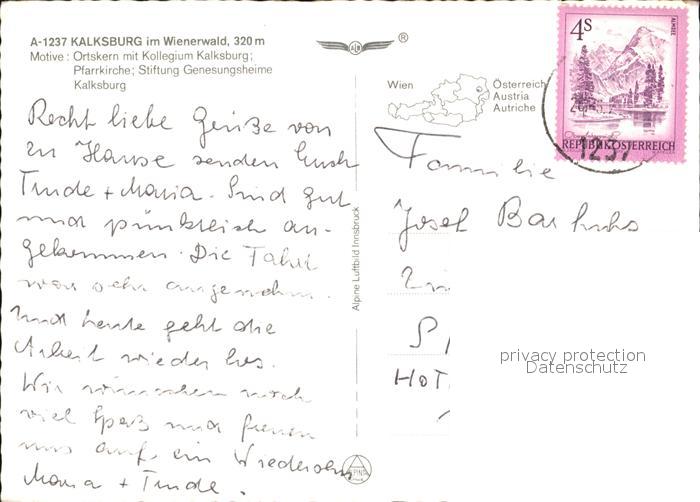 A-1237 KALKSBURG im Wienerwald, 320 m
Motive: Ortskern mit Kollegium Kalksburg;
Pfarrkirche; Stiftung Genesungsheime
Kalksburg
®
Wien
Österreich
Austria
Autriche
4S
ALMSEE
REPUBLIK ÖSTERREICH
1237
Recht liebe Grüße von
zu Hause senden Euch
Trude + Maria. Sind gut
und pünktlich an-
gekommen. Die Fahrt
war sehr angenehm.
Und heute geht die
Arbeit wieder los.
Wir wünschen noch
viel Spaß und freuen
uns auf ein Wiedersehn
Maria + Trude.
Alpine Luftbild Innsbruck
Familie
Josef
HOT
privacy protection
Datenschutz